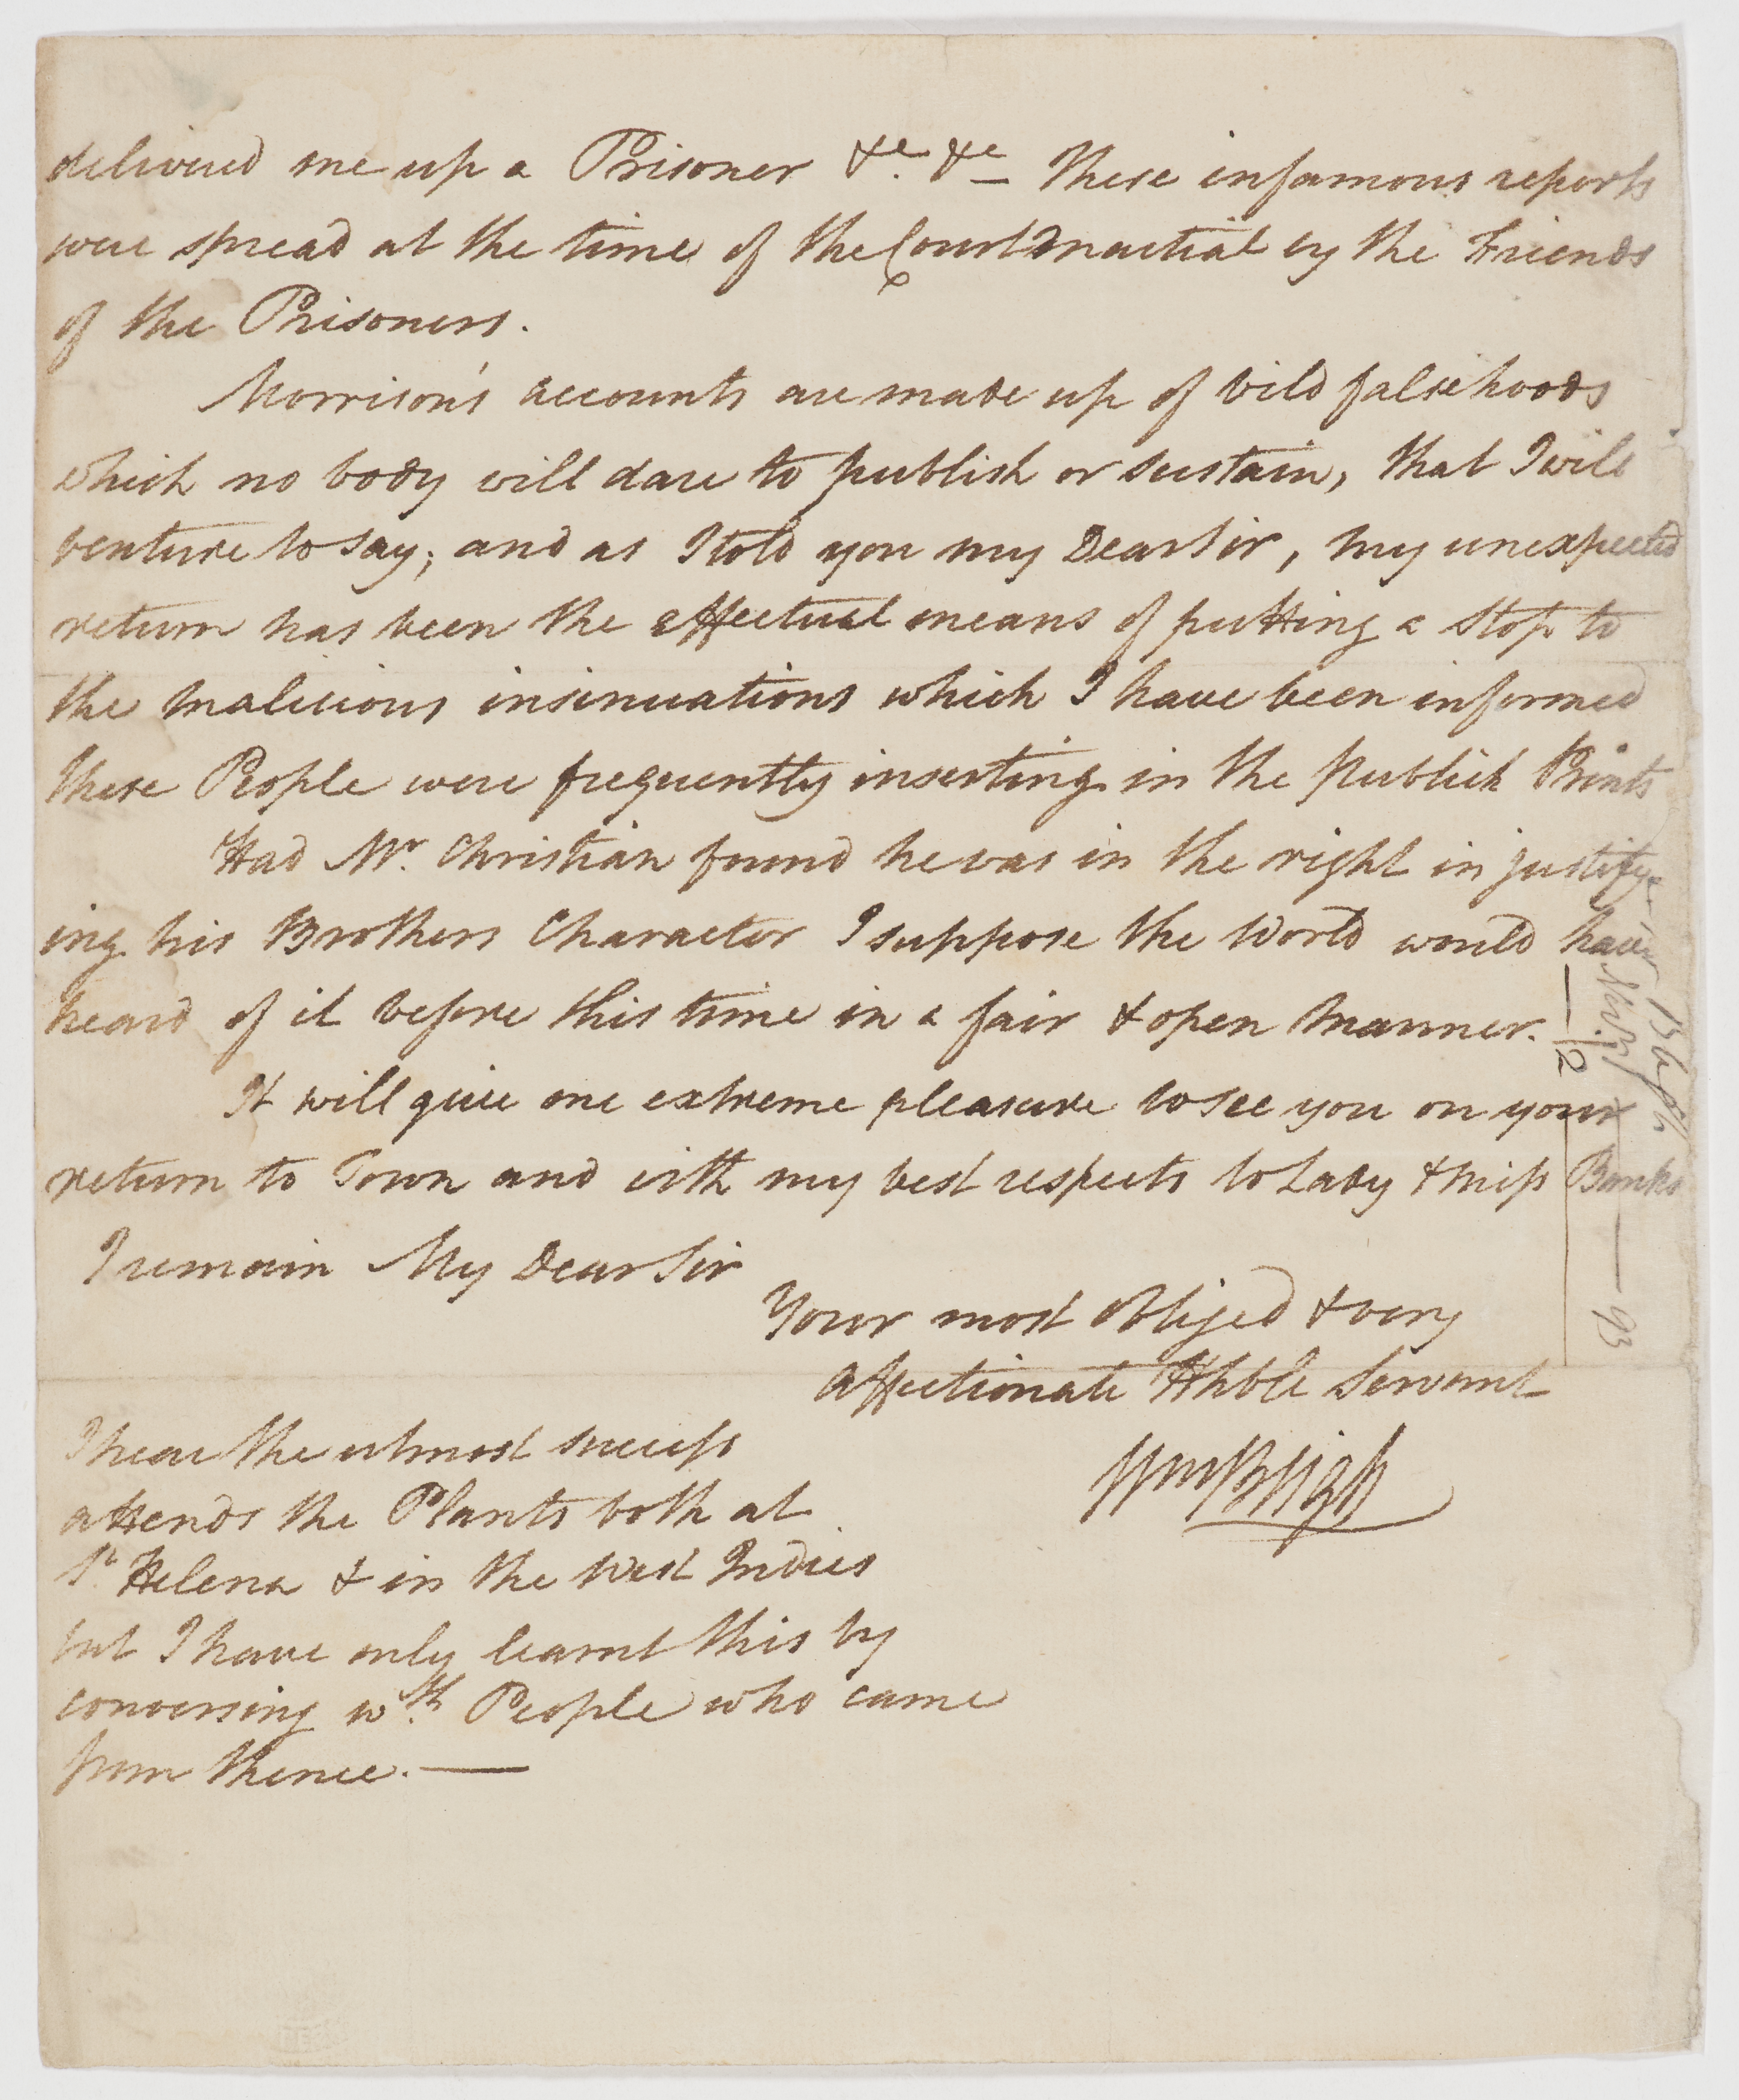 delivered me up a Prisoner &c. &c These infamous reports
were spread at the time of the Court Martial by the Friends
of the Prisoners.
Morrison's accounts are made up of vile falsehoods
which no body will dare to publish or sustain, that I will
venture to say; and as I told you my Dear Sir, my unexpected
return has been the effectual means of putting a Stop to
the malicious insinuations which I have been informed
these People were frequently inserting in the Publick Prints
Had Mr. Christian found he was in the right in justify-
ing his Brothers Character I suppose the World would have
heard of it before this time in a fair & open manner.
It will give me extreme pleasure to see you on your
return to Town and with my best respects to Lady & Miss Banks
I remain My Dear Sir
Your most obliged & very
affectionate Hhble Servant
Wm Bligh
I hear the utmost success
attends the Plants both at
St. Helena & in the West Indies
but I have only learnt this by
conversing wth. People who came
from thence. —
Bligh
Novr. 93